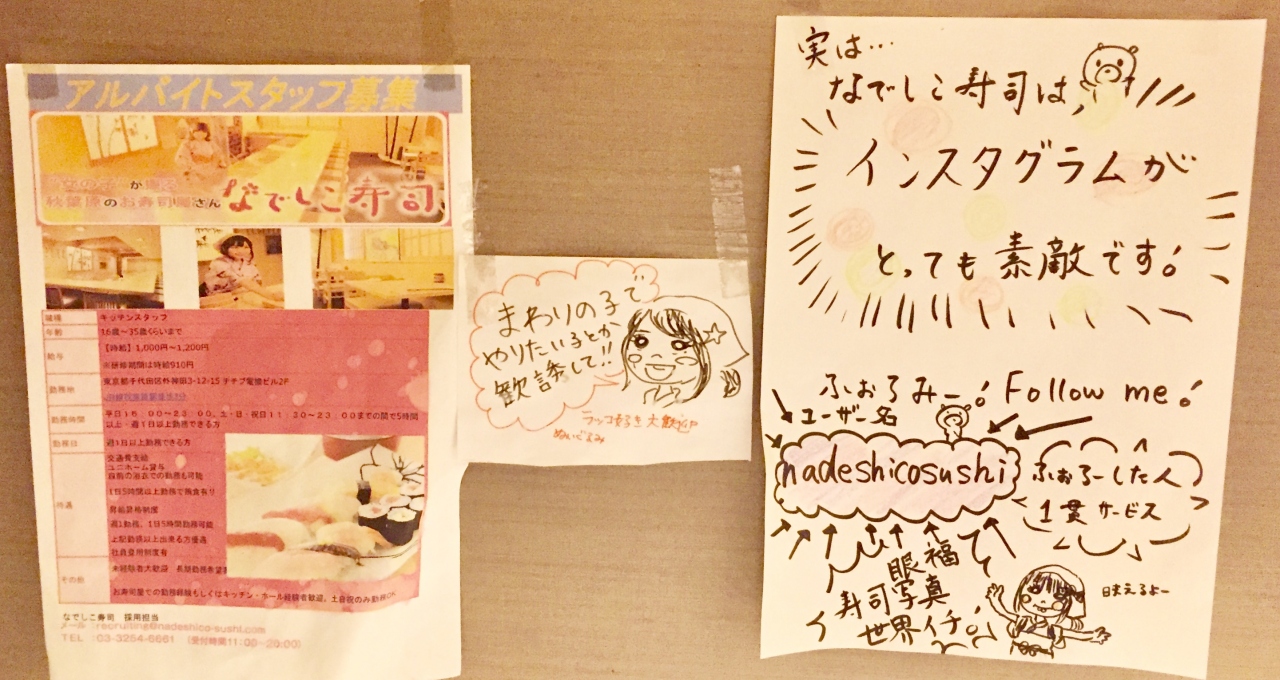 アルバイトスタッフ募集
秋葉原のお寿司屋さん
なでしこ寿司
職種 キッチンスタッフ
年齢 16歳~35歳くらいまで
給与 【時給】1,000円~1,200円
※研修期間は時給910円
勤務地 東京都千代田区外神田3-12-15
勤務時間 平日16:00~23:00、土・日・祝日11:30~23:00までの間で5時間
以上・週1日以上勤務できる方
勤務日 週1日以上勤務できる方
待遇 交通費支給
ユニホーム貸与
自前の浴衣での勤務も可能
1日5時間以上勤務で賄食有り
昇給昇格制度
週1勤務、1日5時間勤務可能
上記勤務以上出来る方優遇
社員登用制度有
その他 未経験者大歓迎 長期勤務希望者
お寿司屋での勤務経験もしくはキッチン・ホール経験者歓迎。土日祝のみ勤務OK
なでしこ寿司 採用担当
メール:recruiting@nadeshico-sushi.com
TEL :03-3254-6661 (受付時間11:00~20:00)
まわりの子で
やりたい子とか
歓誘して!!
ラッコ好き大歓迎
ぬいぐるみ
実は…
なでしこ寿司は、
インスタグラムが
とっても素敵です!
ふぉろみー! Follow me!
ユーザー名
nadeshicosushi
ふぉろーした人
1貫サービス
眼福
寿司写真
世界イチ!
映えるよー